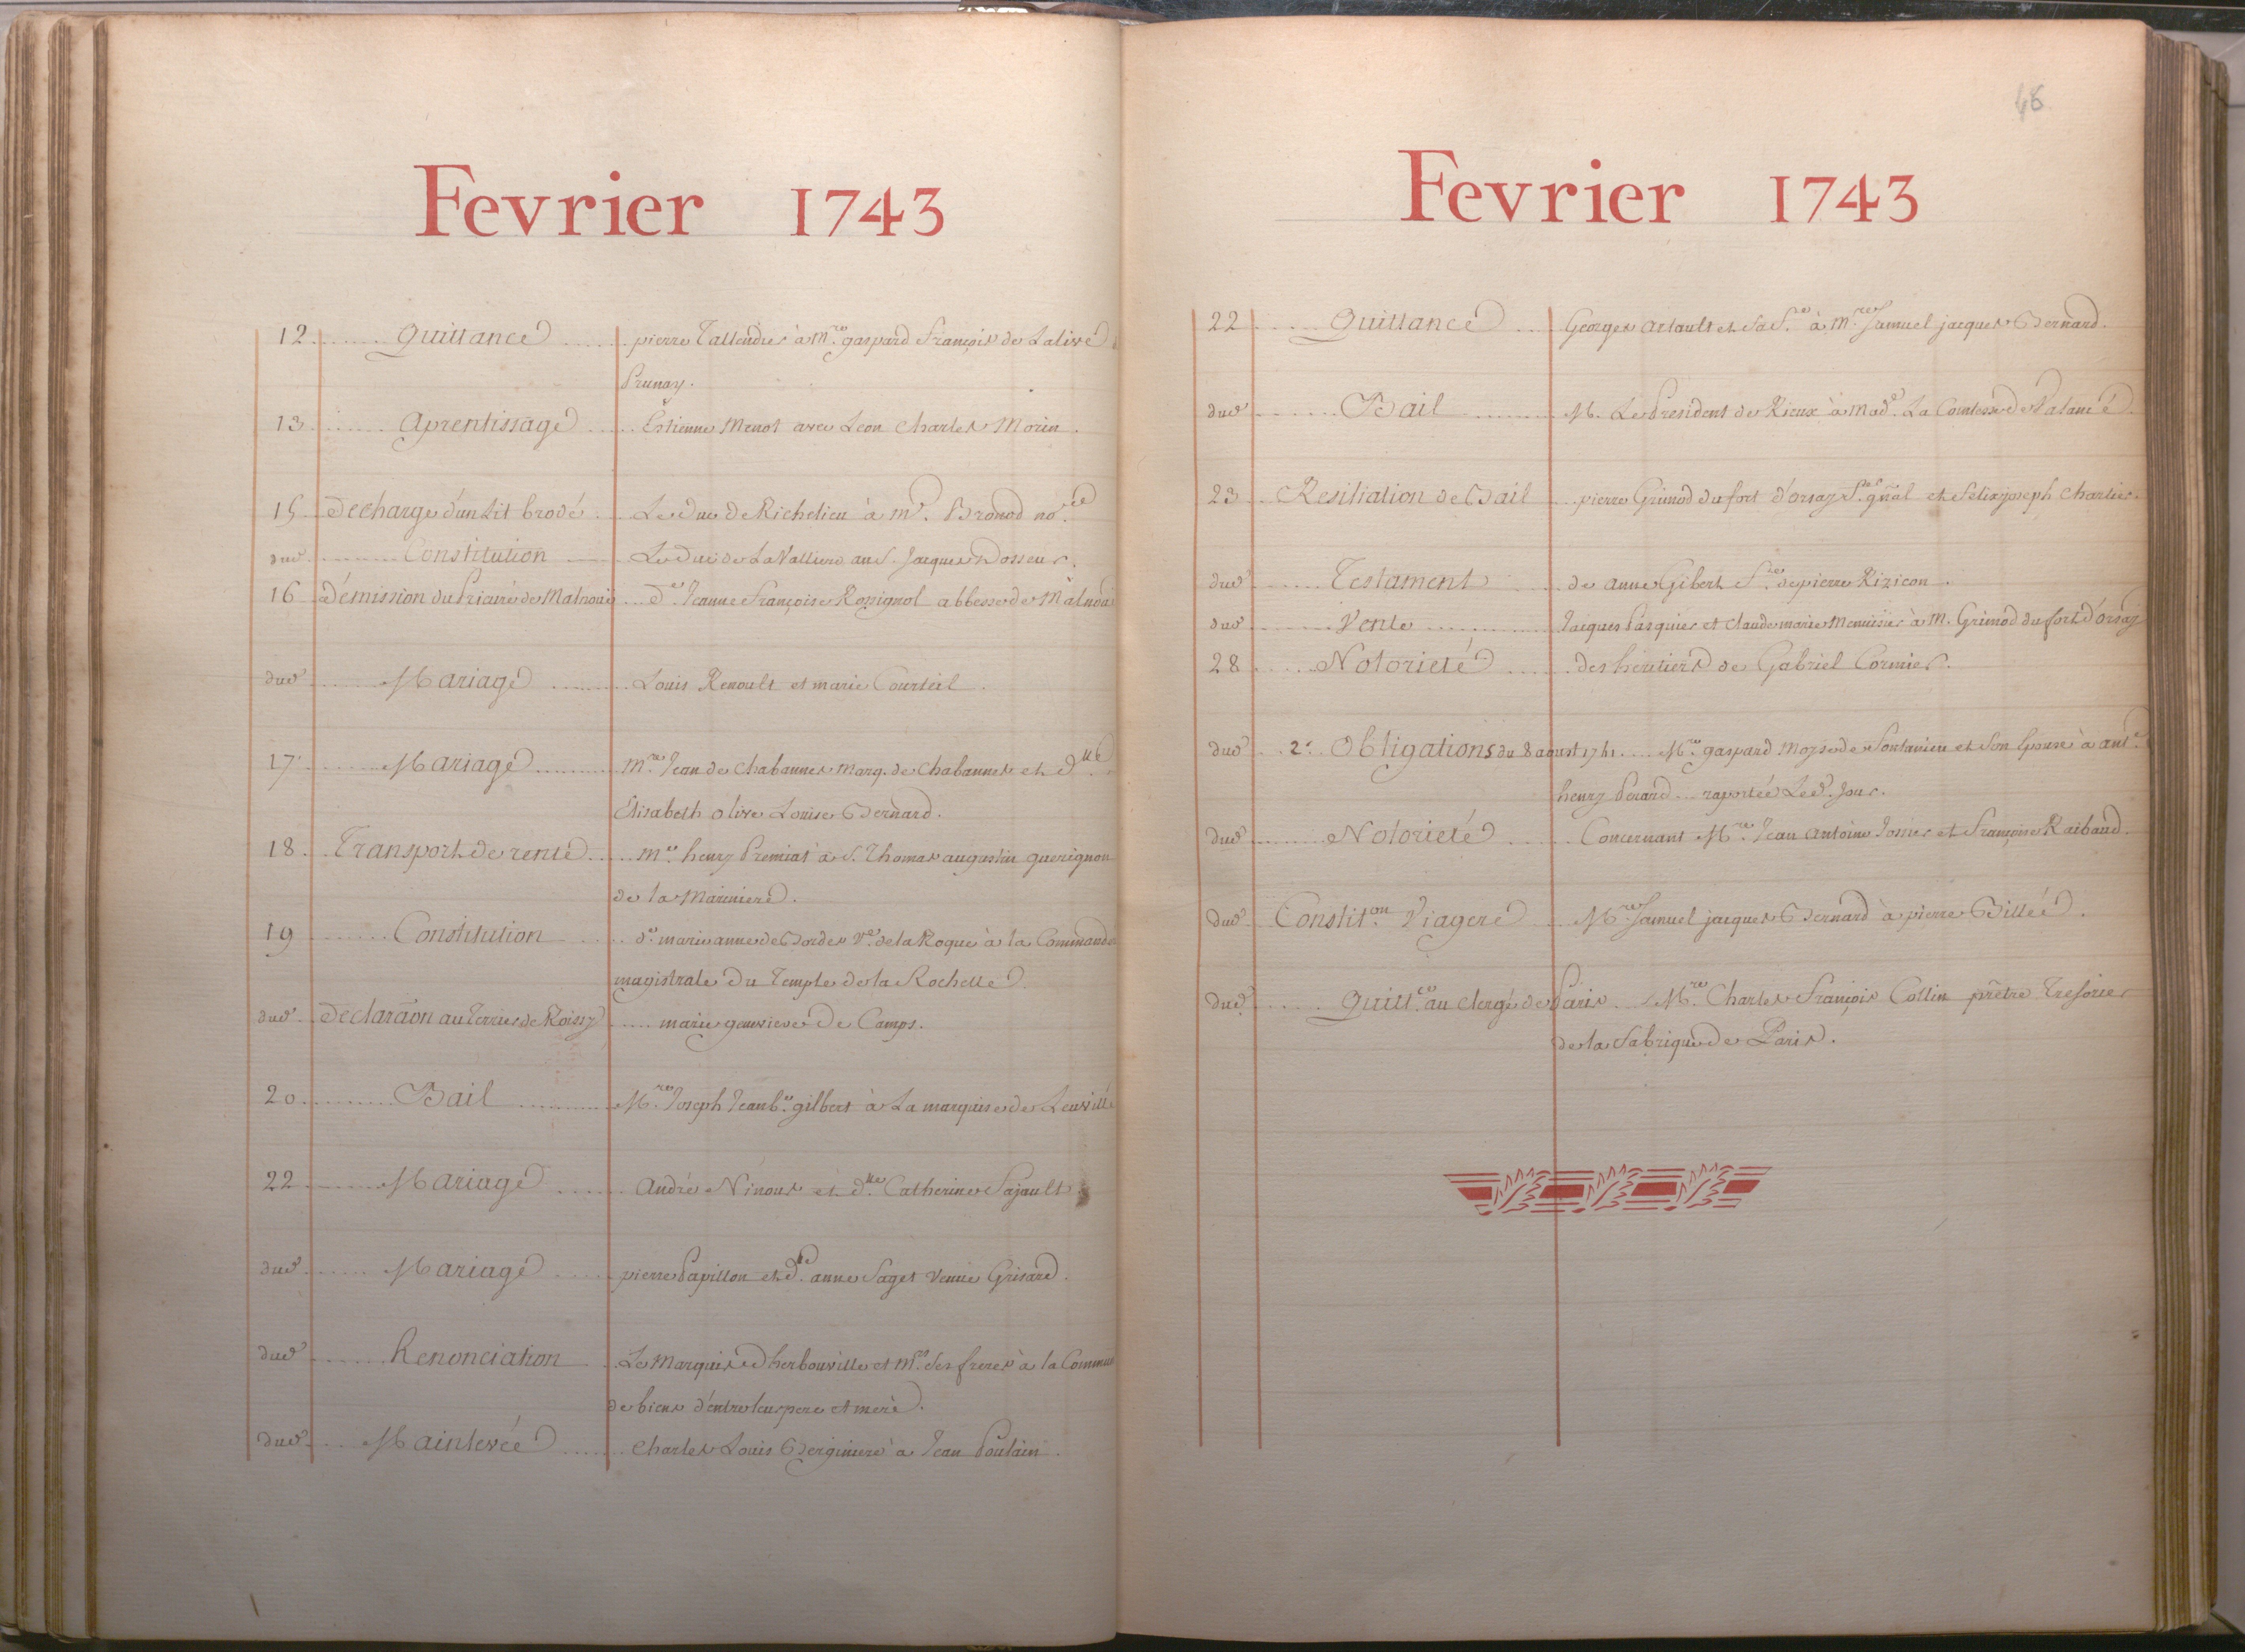 Fevrier 1743
12 Quittance pierre Tallendier à Mre gaspard François de Lalive
Prunay.
13 Aprentissage Estienne Menot avec Leon Charles Morin.
15 Decharge d'un Lit brodé Le Duc de Richelieu à Me. Bronod nore.
dud. Constitution Le Duc de La Valliere au S. Jacques Dosseur.
16 démission du Prieuré de Malnoüe De. Jeanne Françoise Rossignol abbesse de
dud. Mariage Louis Renoult et marie Courteil.
17 Mariage Mre. Jean de Chabannes Marq. de Chabannes et Dlle
Elisabeth olive Louise Bernard.
18 Transport de rente Me. henry Premiat à S. Thomas augustin querignon
de la Mariniere.
19 Constitution De. marie anne de Bordes Ve. de la Roque à la
magistrale du Temple de la Rochelle.
dud. declaraõn au Terrier de Roissy marie genevieve De Camps.
20 Bail Mre. Joseph Jean Be. gilbert à La marquise de
22 Mariage André Ninous et Dlle Catherine Sajault
dud. Mariage pierre Papillon et Dlle anne Saget veuve Grisard.
dud. Renonciation Le Marquis d'herbouville et Mrs. ses freres à la
de biens d'entre leur pere et mere.
dud. Mainlevée Charles Louis Berginiere à Jean Poulain.
48
Fevrier 1743
22 Quittance Georges Artault et sa fe. à Mre. Samuel jacques Bernard.
dud. Bail M. Le President de Rieux à Made. La Comtesse de
23 Resiliation de Bail pierre Grimod du fort d'orsay fer. gñal et Felix joseph Chartier.
dud. Testament de anne Gibert fe. de pierre Rizicon.
dud. Vente Jacques Pasquier et Claude marie Menuisier à M. Grimod du fort d'orsay
28 Notorieté des heritiers de Gabriel Cormier.
dud. 2e. Obligations du 8 aoust 1741. Mre. gaspard Moyse de Fontanieu et son Epouse à ante.
henry Perard raportée Led. Jour.
dud. Notorieté Concernant Mre. Jean Antoine Josnier et Françoise Raibaud.
dud. Constiton. Viagere Mre. Samuel jacques Bernard à pierre Billée.
dud. Quittce. au Clergé de Paris Mre. Charles François Collin prêtre Tresorier
de la Fabrique de Paris.